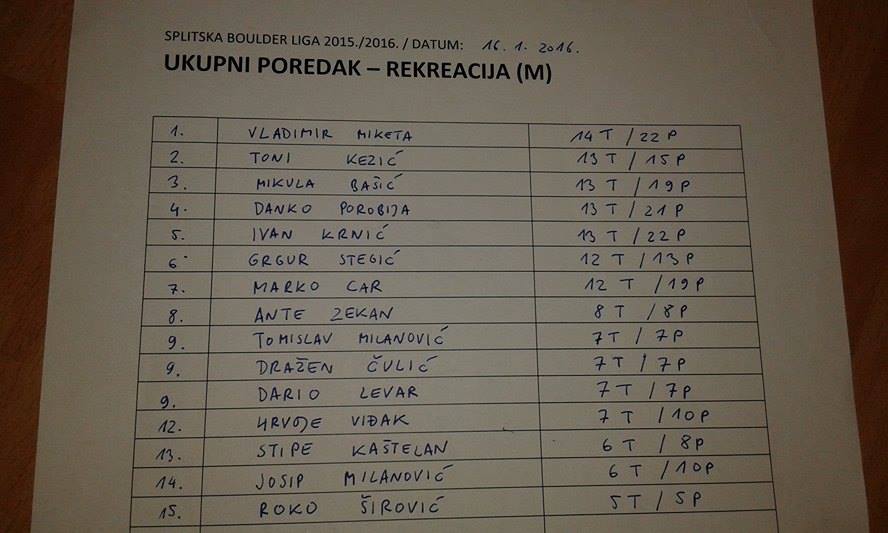 SPLITSKA BOULDER LIGA 2015./2016. / DATUM: 16. 1. 2016.
UKUPNI POREDAK – REKREACIJA (M)
1. VLADIMIR MIKETA 14 T / 22 P
2. TONI KEZIĆ 13 T / 15 P
3. MIKULA BAŠIĆ 13 T / 19 P
4. DANKO POROBIJA 13 T / 21 P
5. IVAN KRNIĆ 13 T / 22 P
6. GRGUR STEGIĆ 12 T / 13 P
7. MARKO CAR 12 T / 19 P
8. ANTE ZEKAN 8 T / 8 P
9. TOMISLAV MILANOVIĆ 7 T / 7 P
9. DRAŽEN ČULIĆ 7 T / 7 P
9. DARIO LEVAR 7 T / 7 P
12. HRVOJE VIĐAK 7 T / 10 P
13. STIPE KAŠTELAN 6 T / 8 P
14. JOSIP MILANOVIĆ 6 T / 10 P
15. ROKO ŠIROVIĆ 5 T / 5 P